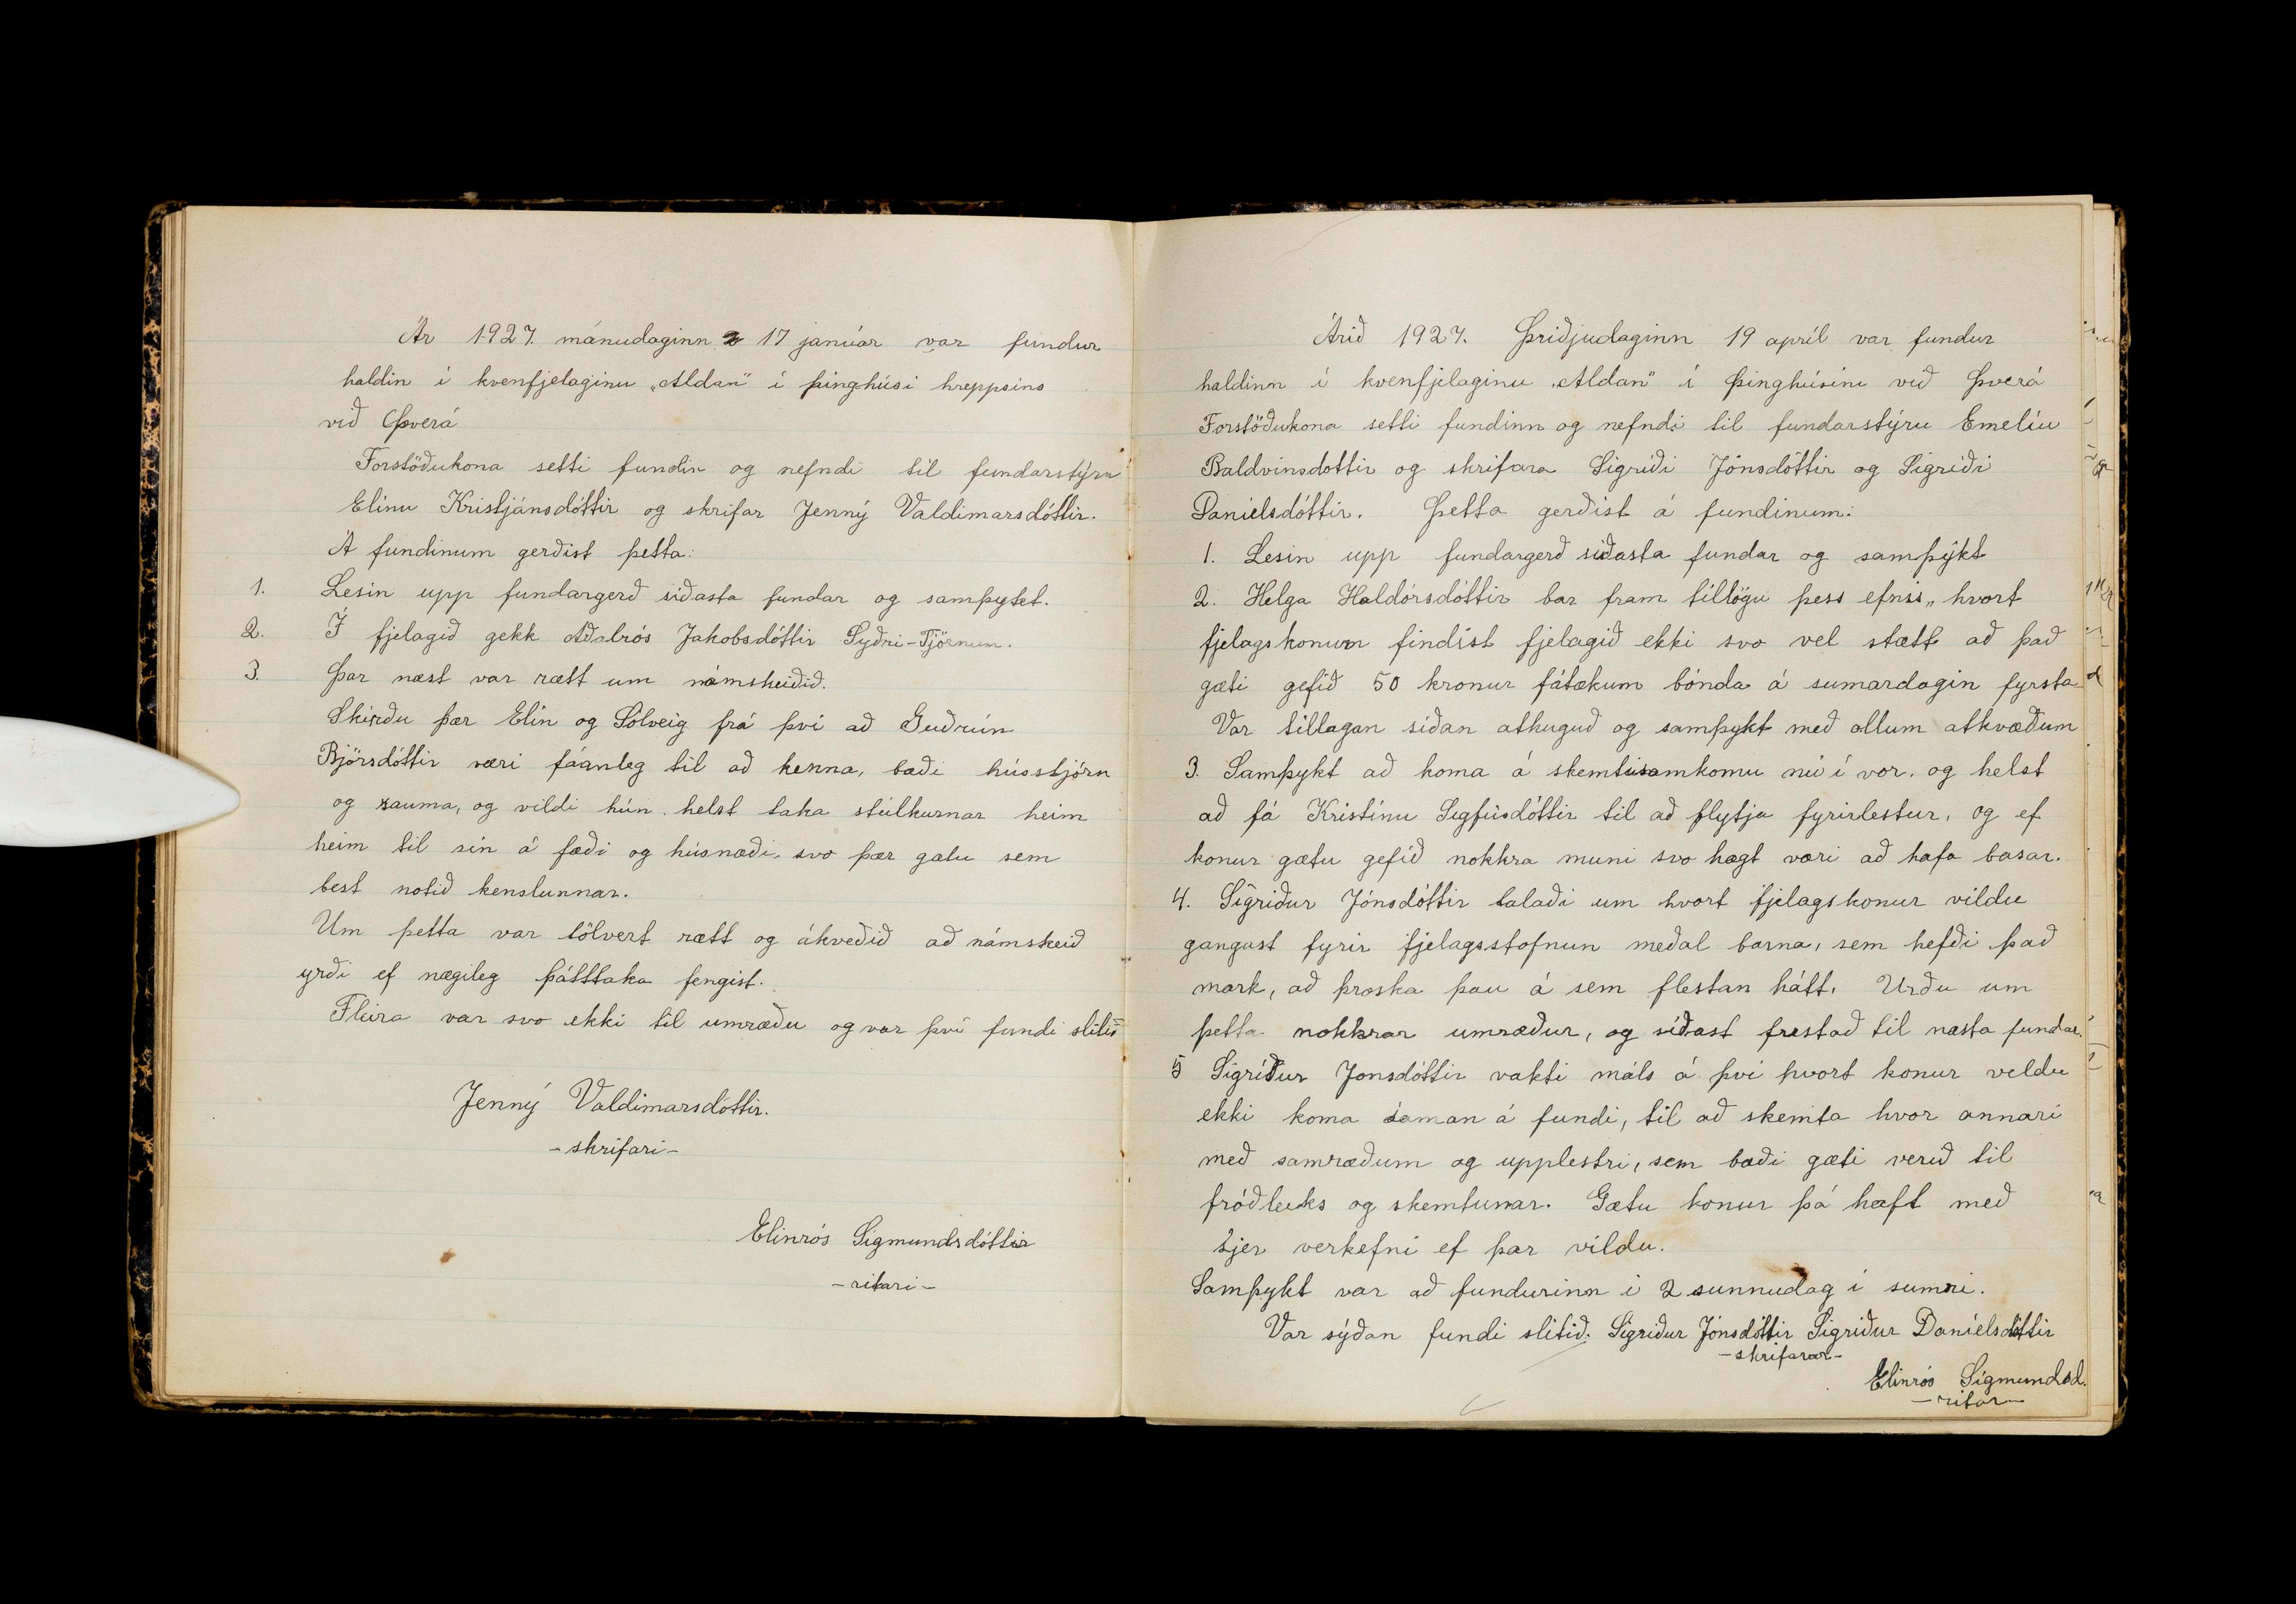 Ár 1927. mánudaginn 17 janúar var fundur
haldin í kvenfjelaginu „Aldan" í þinghúsi hreppsins
við Þverá
Forstöðukona setti fundin og nefndi til fundarstýru
Elínu Kristjánsdóttir og skrifar Jenný Valdimarsdóttir.
Á fundinum gerðist þetta:
1. Lesin upp fundargerð síðasta fundar og samþykt.
2. Í fjelagið gekk Aðalrós Jakobsdóttir Syðri-Tjörnum.
3. Þar næst var rætt um námsheiðið.
Skírðu þær Elín og Sólveig frá því að Guðrún
Björsdóttir væri fáanleg til að kenna, bæði hússtjórn
og sauma, og vildi hún helst taka stúlkurnar heim
heim til sín á fæði og húsnæði, svo þær gætu sem
best notið kenslunnar.
Um þetta var tölvert rætt og ákveðið að námskeið
yrði ef nægileg þátttaka fengist.
Fleira var svo ekki til umræðu og var því fundi slitið
Jenný Valdimarsdóttir.
-skrifari-
Elinrós Sigmundsdóttir
-ritari-
Árið 1927. Þriðjudaginn 19 apríl var fundur
haldinn í kvenfjelaginu „Aldan" í þinghúsinu við Þverá
Forstöðukona setti fundinn og nefndi til fundarstýru Emelíu
Baldvinsdottir og skrifara Sigríði Jónsdóttir og Sigríði
Daníelsdóttir. Þetta gerðist á fundinum:
1. Lesin upp fundargerð síðasta fundar og samþýkt
2. Helga Haldórsdóttir bar fram tillögu þess efnis „hvort
fjelagskonum findist fjelagið ekki svo vel stætt að það
gæti gefið 50 kronur fátækum bónda á sumardagin fyrsta
Var tillagan síðan athuguð og samþykt með ollum atkvæðum
3. Samþykt að koma á skemtisamkomu nú í vor. og helst
að fá Kristínu Sigfúsdóttir til að flytja fyrirlestur, og ef
konur gætu gefið nokkra muni svo hægt væri að hafa basar.
4. Sigríður Jónsdóttir talaði um hvort fjelagskonur vildu
gangast fyrir fjelagsstofnun meðal barna, sem hefði það
mark, að þroska þau á sem flestan hátt. Urðu um
þetta nokkrar umræður, og síðast frestað til næsta fundar.
5 Sigríður Jonsdóttir vakti máls á því hvort konur veldu
ekki koma saman á fundi, til að skemta hvor annari
með samræðum og upplestri, sem bæði gæti verið til
fróðleiks og skemtunar. Gætu konur þá hæft með
sjer verkefni ef þær vildu.
Samþykt var að fundurinn i 2 sunnudag í sumri.
Var sýðan fundi slitið. Sigríður Jónsdóttir Sigríður Daníelsdóttir
-skrifarar-
Elinrós Sigmundsd.
-ritar-